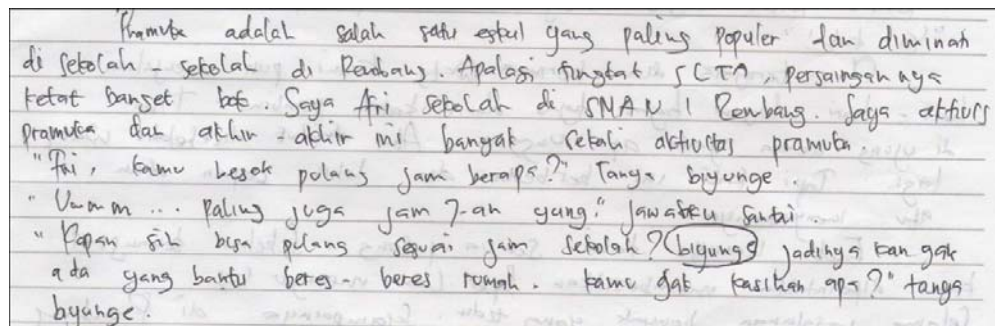 Pramuka adalah salah satu eskul yang paling populer dan diminati
di sekolah sekolah di Rembang. Apalagi tingkat SLTA, persaingannya
ketat banget bok. Saya Tri sekolah di SMAN 1 Rembang. Saya aktivis
pramuka dan akhir-akhir ini banyak sekali aktivitas pramuka.
"Tri, kamu besok pulang jam berapa?" Tanya biyunge.
"Ummm ... paling juga jam 7-an yung." jawabku santai...
"Kapan sih bisa pulang sesuai jam sekolah? biyunge jadinya kan gak
ada yang bantu beres-beres rumah. kamu gak kasihan apa?" tanya
biyunge.